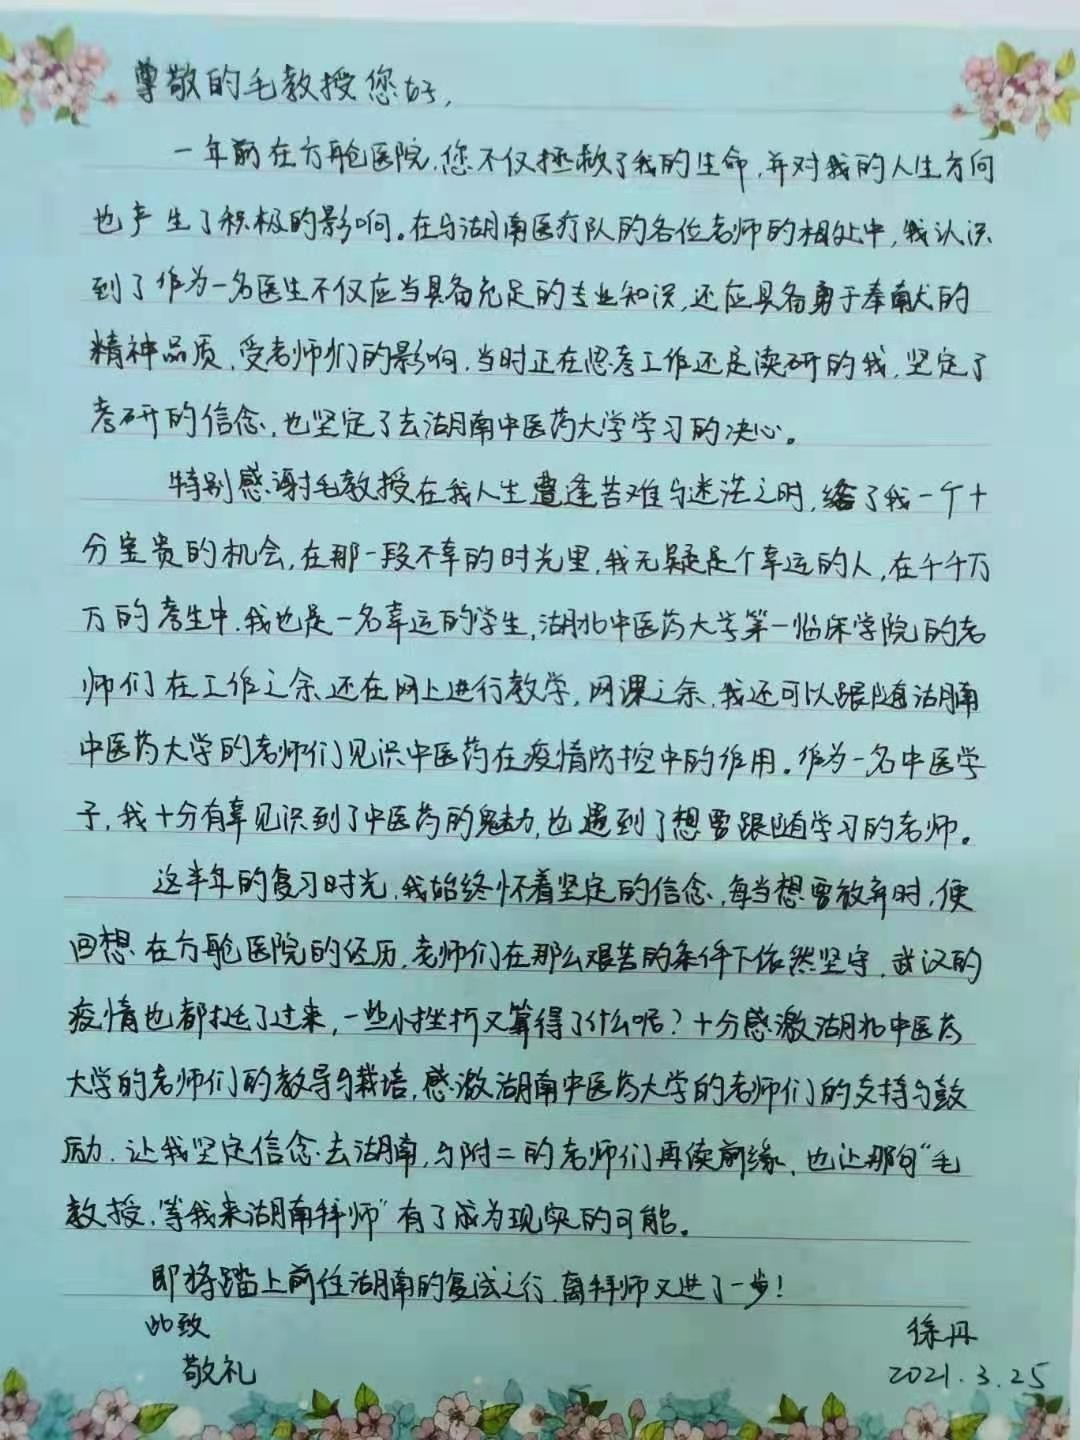 尊敬的毛教授您好，
一年前在方舱医院，您不仅拯救了我的生命，并对我的人生方向
也产生了积极的影响。在与湖南医疗队的各位老师的相处中，我认识
到了作为一名医生不仅应当具备充足的专业知识，还应具备勇于奉献的
精神品质，受老师们的影响，当时正在思考工作还是读研的我，坚定了
考研的信念，也坚定了去湖南中医药大学学习的决心。
特别感谢毛教授在我人生遭逢苦难与迷茫之时，给了我一个十
分宝贵的机会，在那一段不幸的时光里，我无疑是个幸运的人，在千千万
万的考生中，我也是一名幸运的学生，湖北中医药大学第一临床学院的老
师们在工作之余还在网上进行教学，网课之余，我还可以跟随湖南
中医药大学的老师们见识中医药在疫情防控中的作用。作为一名中医学
子，我十分有幸见识到了中医药的魅力，也遇到了想要跟随学习的老师。
这半年的复习时光，我始终怀着坚定的信念，每当想要放弃时，便
回想在方舱医院的经历，老师们在那么艰苦的条件下依然坚守，武汉的
疫情也都挺了过来，一些小挫折又算得了什么呢？十分感激湖北中医药
大学的老师们的教导与栽培，感激湖南中医药大学的老师们的支持与鼓
励，让我坚定信念去湖南，与附二的老师们再续前缘，也让那句“毛
教授，等我来湖南拜师”有了成为现实的可能。
即将踏上前往湖南的复试之行，离拜师又进了一步！
此致
徐丹
敬礼
2021.3.25